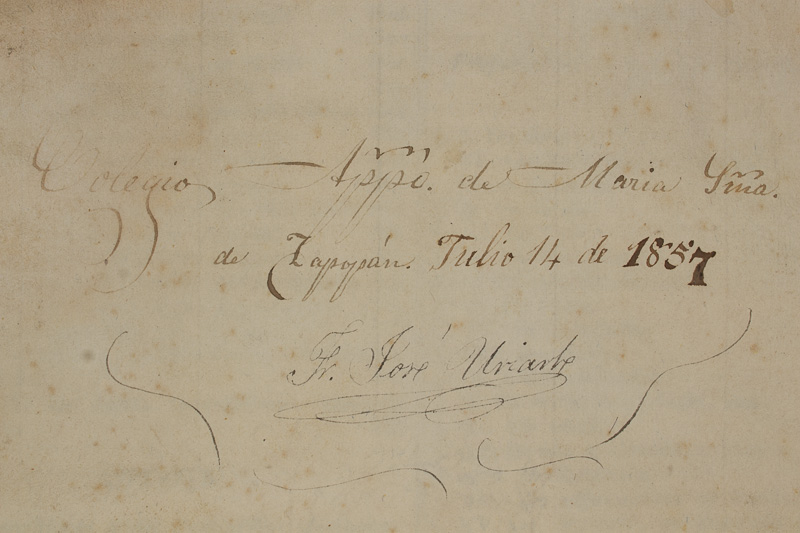 Colegio Appo. de Maria Sma.
de Zapopán. Julio 14 de 1857
Fr. José Uriarte